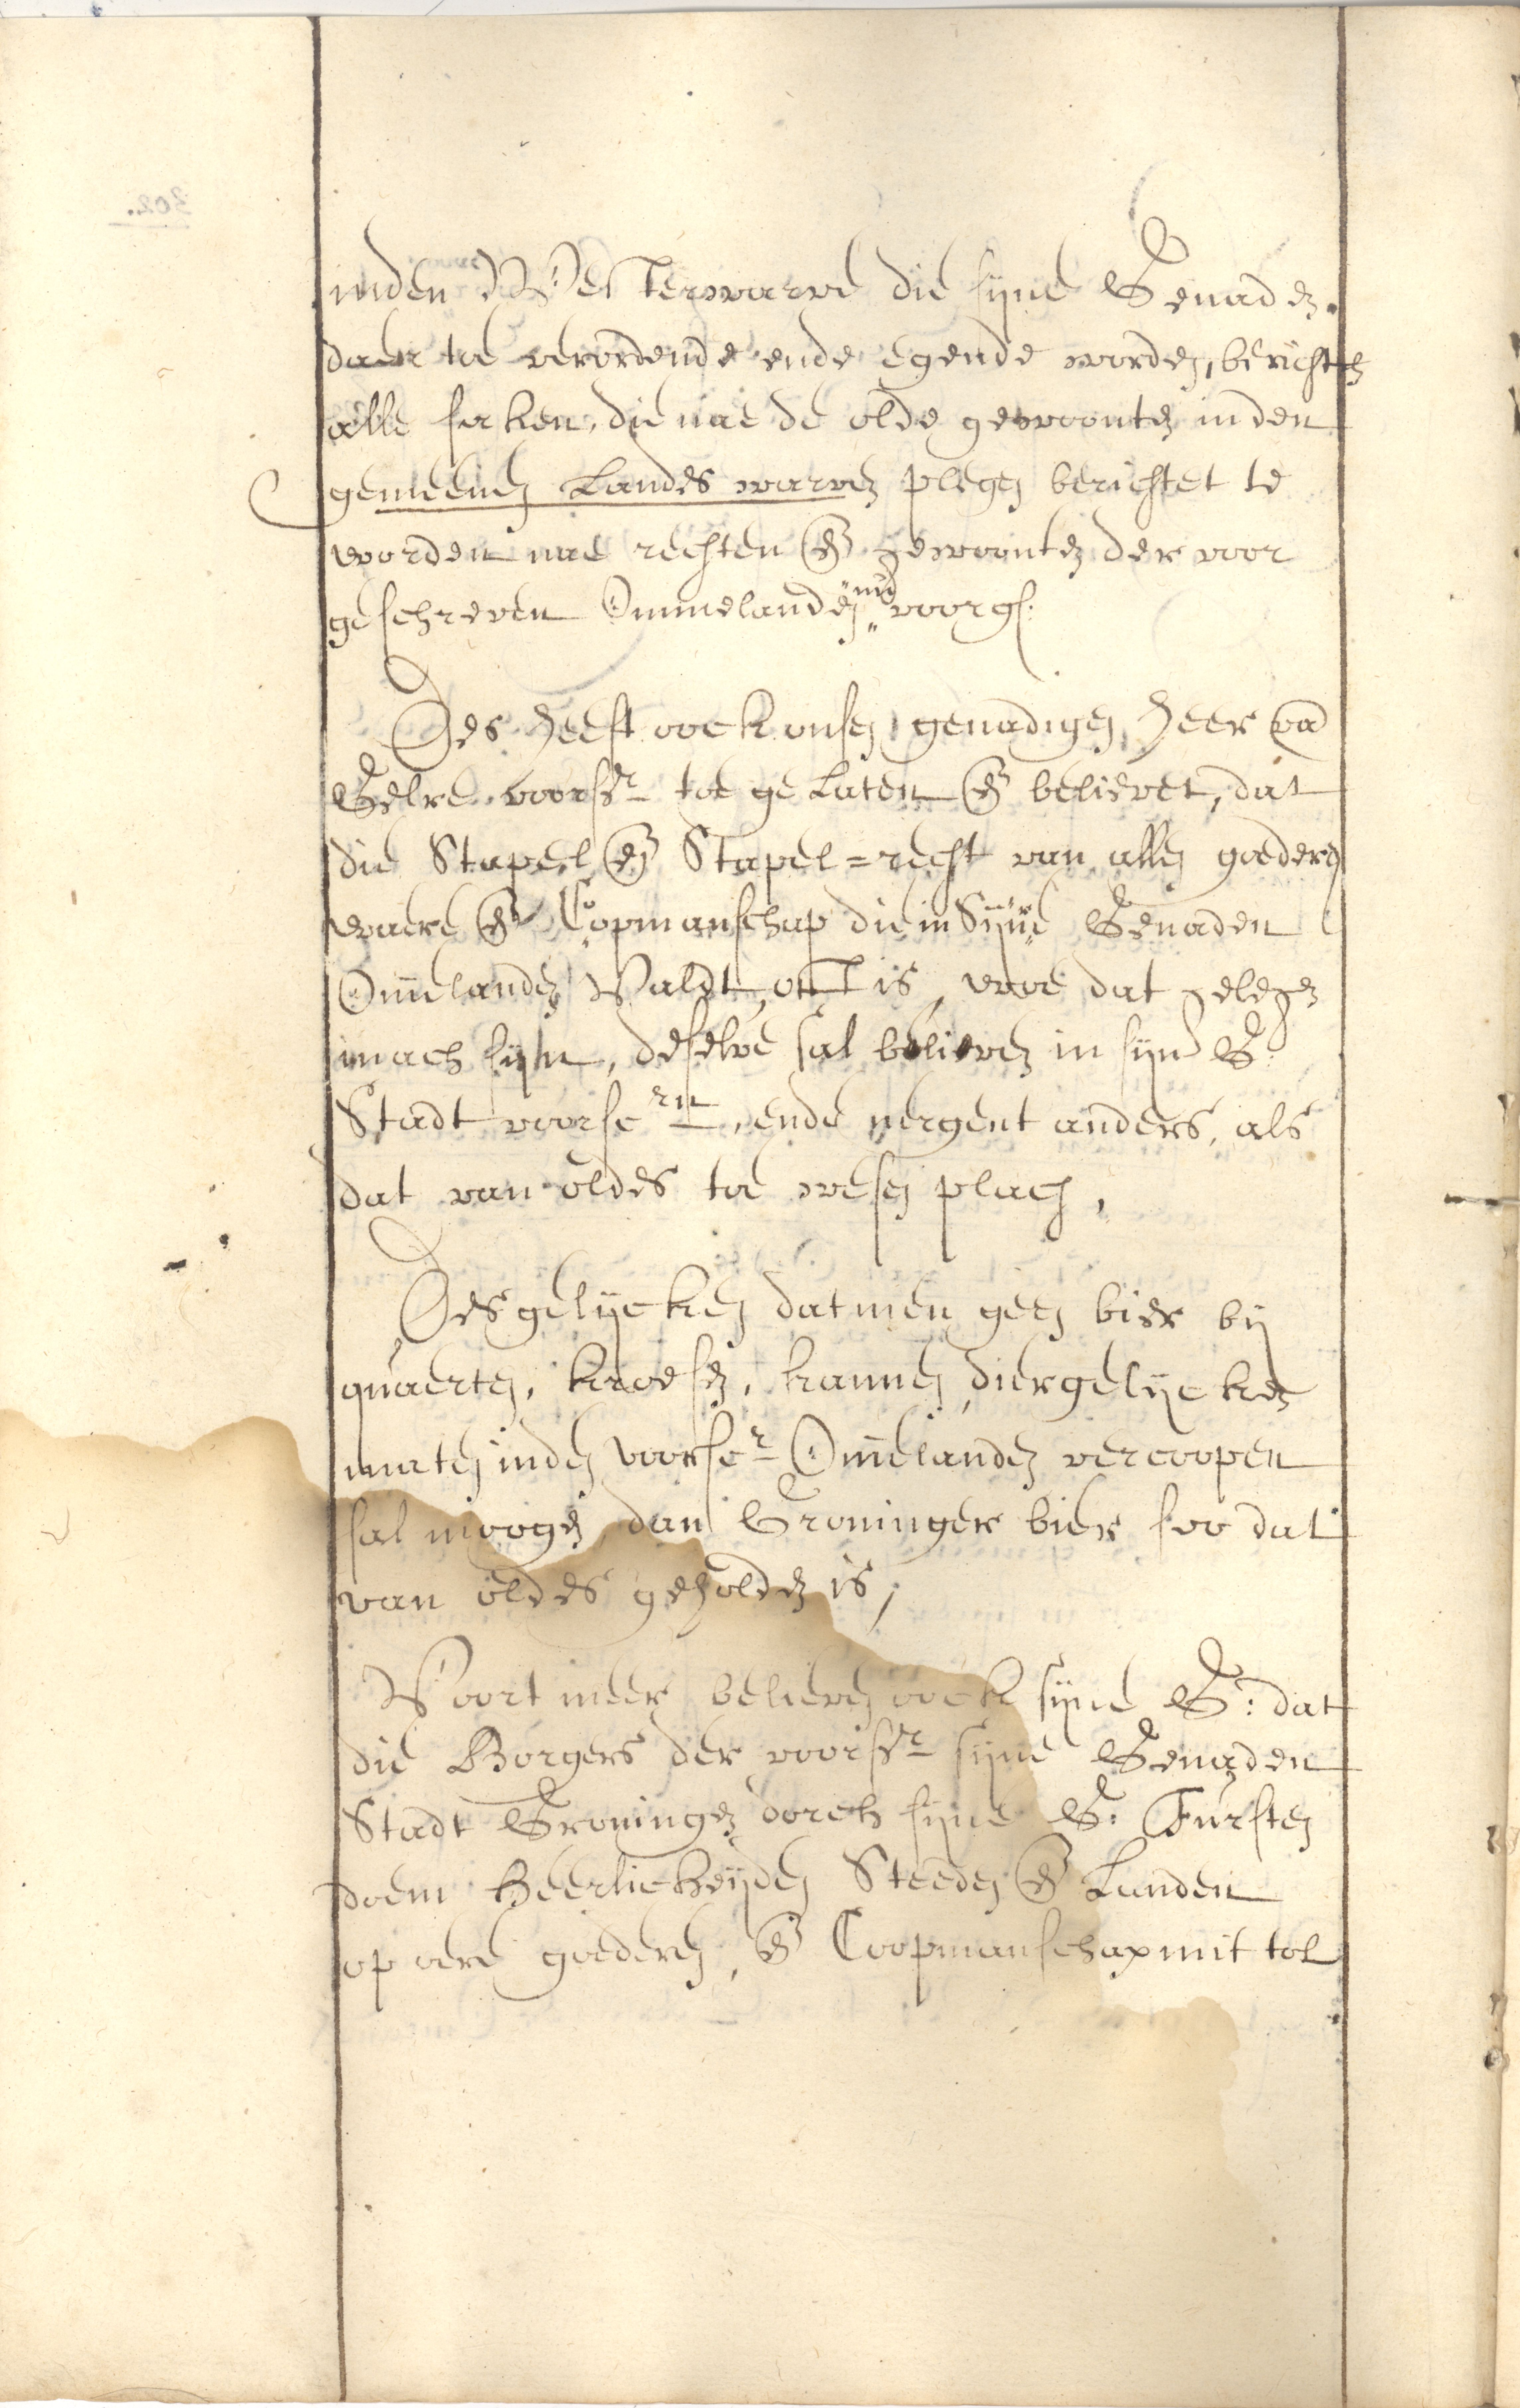 inden Westerwarve die sijne Genaden
daer toe verordende ende egende worden, berichten
alle saken, die nae de olde gewoonten inden
gemeenen Landes warven plegen berichtet te
worden nae rechten en gewoonten der voor
geschreven Ommelanden voorgs:
Des heeft oock onsen genadigen Heer va
Gelre voorsr toe gelaten en believet, dat
die Stapel en Stapel=recht van allen goederen
waere en Copmanschap die in Sijne Genaden
Omelanden Valdt, is, woe dat gelegen
mach sijn, deselve sal believen in sijne G:
Stadt voorscrn, ende nergent anders, als
dat van oldes toe wesen plach,
Desgelijcken datmen geen bier bij
quaerten, kroesen, kannen, diergelijcken
maten inden voorscr Omelanden vercoopen
sal moogen dan Groninger bier soo dat
van oldes geholden is,
Voort meer believen oock sijne G: dat
die Borgers der voorsr sijne Genaden
Stadt Groningen dorch sijne G: Fursten
doem Heerlickheijden Steeden en Landen
op oere goederen, en Coopmanschap mit tol
302.